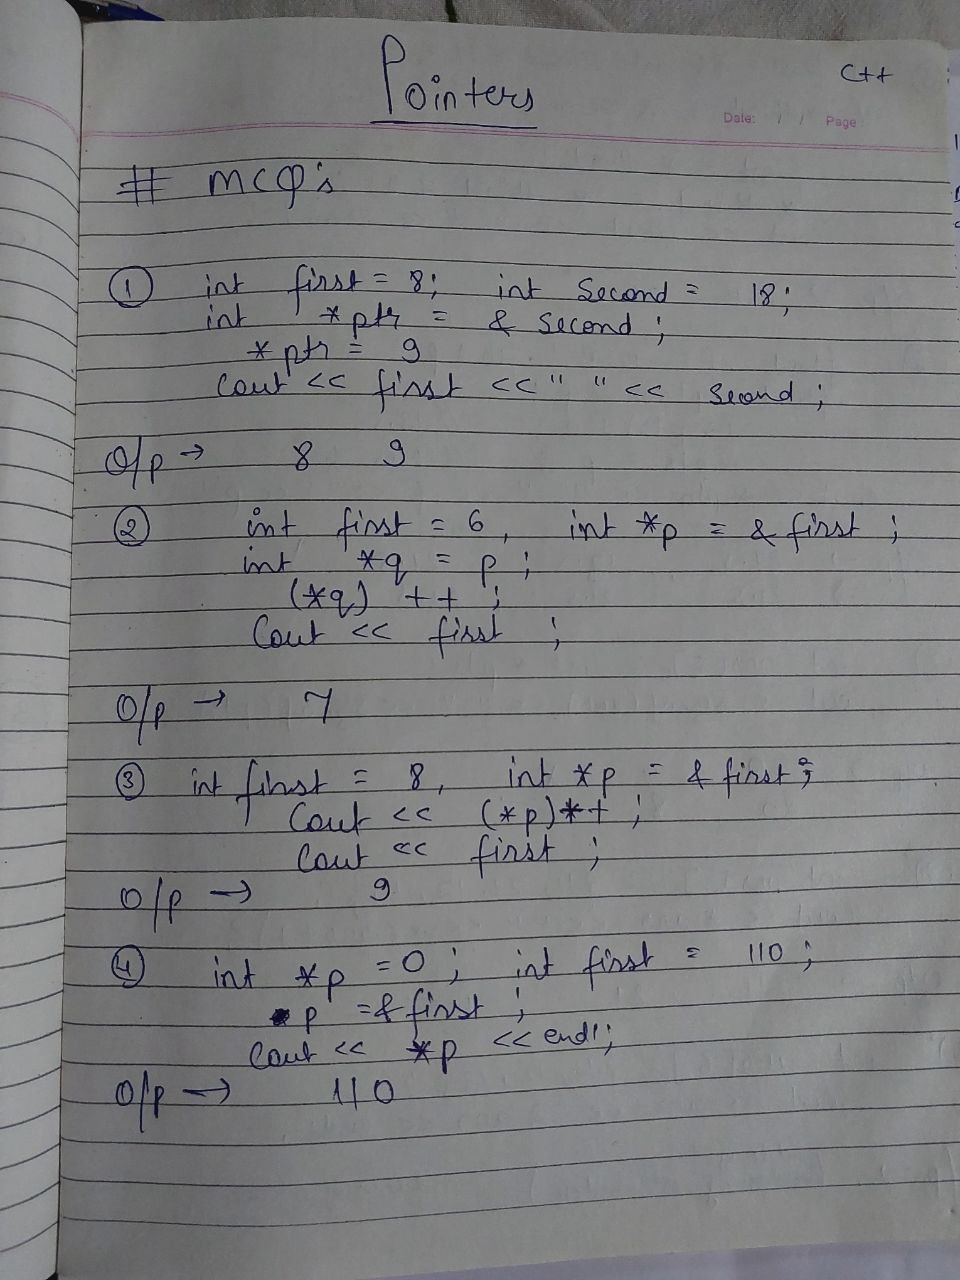 Pointers
C++
Date: / / Page
# MCQ's
① int first = 8; int Second = 18;
int *ptr = & Second ;
*ptr = 9
Cout << first << " " << Second ;
O/p → 8 9
② int first = 6 , int *p = & first ;
int *q = p ;
(*q) ++ ;
Cout << first ;
O/p → 7
③ int first = 8, int *p = & first ;
Cout << (*p)++ ;
Cout << first ;
O/p → 9
④ int *p = 0 ; int first = 110 ;
p = & first ;
Cout << *p << endl;
O/p → 110